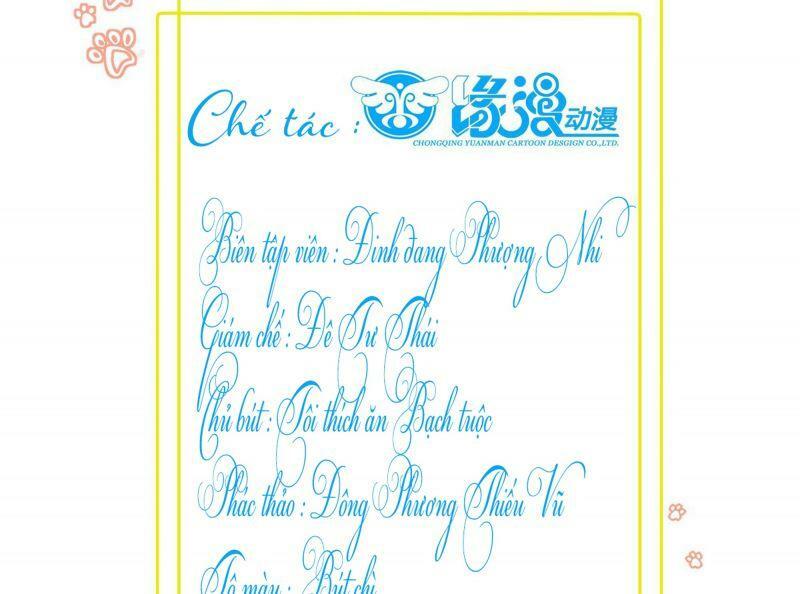 Chế tác : 缘漫动漫
CHONGQING YUANMAN CARTOON DESGIGN CO.,LTD.
Biên tập viên : Đinh đang Phượng Nhi
Giám chế : Đê Tư Thái
Chủ bút : Tôi thích ăn Bạch tuộc
Phác thảo : Đông Phương Thiếu Vũ
Tô màu : Bút chì